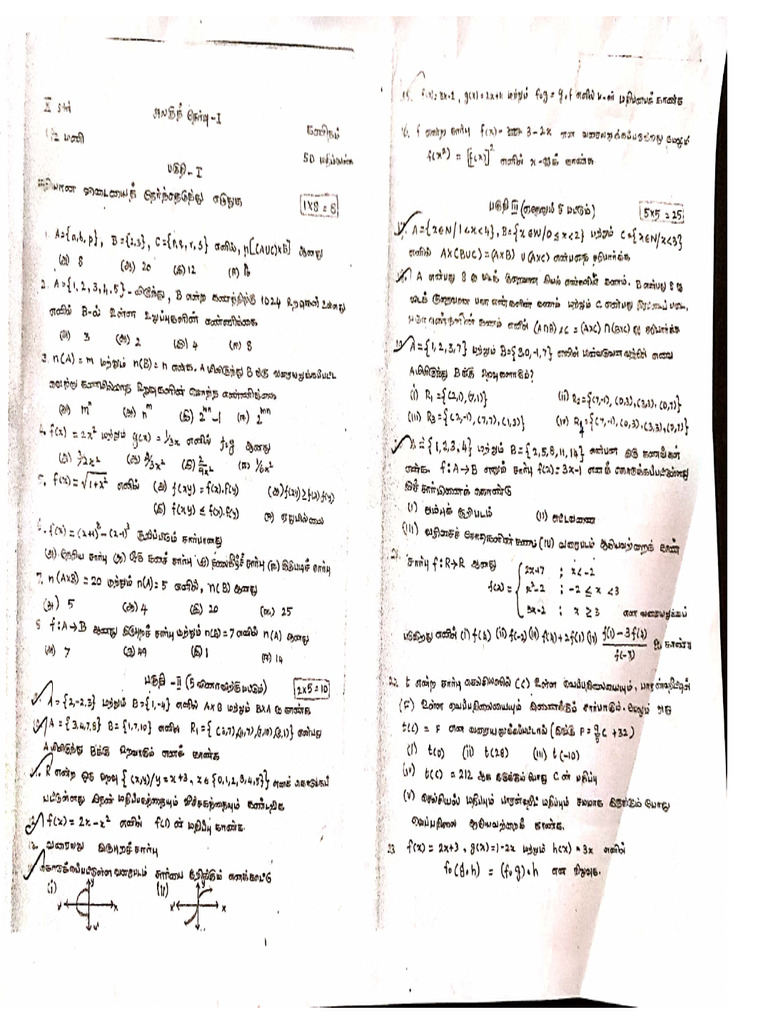 X Std
அலகுத் தேர்வு - I
கணிதம்
1½ மணி
50 மதிப்பெண்
பகுதி - I
சரியான விடையைத் தேர்ந்தெடுத்து எழுதுக
1X8 = 8
1. A={a,b,p}, B={2,3}, C={p,q,r,s} எனில், n[(AUC)XB] ஆனது
(அ) 8 (ஆ) 20 (இ) 12 (ஈ) 16
2. A={1,2,3,4,5} - லிருந்து, B என்ற கணத்திற்கு 1024 உறவுகள் உள்ளது
எனில் B-ல் உள்ள உறுப்புகளின் எண்ணிக்கை
(அ) 3 (ஆ) 2 (இ) 4 (ஈ) 8
3. n(A) = m மற்றும் n(B) = n என்க. A யிலிருந்து B க்கு வரையறுக்கப்பட்ட
வெற்று கணமில்லாத உறவுகளின் மொத்த எண்ணிக்கை
(அ) mⁿ (ஆ) nᵐ (இ) 2ᵐⁿ-1 (ஈ) 2ᵐⁿ
4. f(x) = 2x² மற்றும் g(x) = 1/3x எனில் fog ஆனது
(அ) 3/2x² (ஆ) 2/3x² (இ) 2/9x² (ஈ) 1/6x²
5. f(x) = √1+x² எனில் (அ) f(xy) = f(x).f(y) (ஆ) f(xy) ≥ f(x).f(y)
(இ) f(xy) ≤ f(x).f(y) (ஈ) ஏதுமில்லை
6. f(x) = (x+1)³ - (x-1)³ குறிப்பிடும் சார்பானது
(அ) நேரிய சார்பு (ஆ) ஒரு கனச் சார்பு (இ) தலைகீழ்ச் சார்பு (ஈ) இருபடிச் சார்பு
7. n(AXB) = 20 மற்றும் n(A) = 5 எனில், n(B) ஆனது
(அ) 5 (ஆ) 4 (இ) 20 (ஈ) 25
8. f: A→B ஆனது இருபுறச் சார்பு மற்றும் n(B) = 7 எனில் n(A) ஆனது
(அ) 7 (ஆ) 49 (இ) 1 (ஈ) 14
பகுதி - II (5 வினாவிற்கு மட்டும்)
2X5=10
9. A = {2,-2,3} மற்றும் B={1,-4} எனில் AXB மற்றும் BXA ஐ காண்க
10. A = {3,4,7,8} B = {1,7,10} எனில் R₁ = {(3,7),(4,7),(7,10),(8,1)} என்பது
A யிலிருந்து B க்கு உறவாகும் எனக் காண்க
11. R என்ற ஒரு உறவு {(x,y)/y=x+3, x∈{0,1,2,3,4,5}} எனக் கொடுக்கப்
பட்டுள்ளது இதன் மதிப்பகத்தையும் வீச்சகத்தையும் கண்டறிக
12. f(x) = 2x-x² எனில் f(1) ன் மதிப்பு காண்க.
வரையறு இருபுறச்சார்பு
கொடுக்கப்பட்டுள்ள வரைபடம் சார்பை குறிக்கும் எனக்காட்டு
(i) (ii)
y x' x y' y x' x y'
15. f(x) = 3x-2, g(x) = 2x+k மற்றும் fog = gof எனில் k-ன் மதிப்பைக் காண்க
16. f என்ற சார்பு f(x) = 3-2x என வரையறுக்கப்படுகிறது மேலும்
f(x²) = [f(x)]² எனில் x-ஐக் காண்க
பகுதி III (ஏதேனும் 5 மட்டும்)
5X5 = 25
17. A={x∈N/1<x<4}, B={x∈W/0≤x<2} மற்றும் C={x∈N/x<3}
எனில் AX(BUC) = (AXB) U (AXC) என்பதை சரிபார்க்க
18. A என்பது 8 ஐ விடக் குறைவான இயல் எண்களின் கணம். B என்பது 8 ஐ
விடக் குறைவான பகா எண்களின் கணம் மற்றும் C என்பது இரட்டைப் பகா
எண்களின் கணம் எனில் (A∩B)XC = (AXC) ∩ (BXC) ஐ சரிபார்க்க
19. A={1,2,3,7} மற்றும் B={3,0,-1,7} எனில் பின்வருவனவற்றில் எவை
A யிலிருந்து B க்கு உறவுகளாகும்?
(i) R₁ = {(2,1),(7,1)} (ii) R₂ = {(7,-1),(0,3),(3,3),(0,7)}
(iii) R₃ = {(2,-1),(7,7),(1,3)} (iv) R₄ = {(7,-1),(0,3),(3,3),(7,7)}
A={1,2,3,4} மற்றும் B={2,5,8,11,14} என்பன இரு கணங்கள்
என்க. f: A→B எனும் சார்பு f(x) = 3x-1 எனக் கொடுக்கப்பட்டுள்ளது
இச் சார்பினைக் கொண்டு
(i) அம்புக் குறிபடம் (ii) அட்டவணை
(iii) வரிசைச் சோடிகளின் கணம் (iv) வரைபடம் ஆகியவற்றைக் காண்
21. சார்பு f: R→R ஆனது
f(x) = { 2x+7 ; x<-2
x²-2 ; -2 ≤ x < 3
3x-2 ; x ≥ 3 என வரையறுக்கப்
படுகிறது எனில் (i) f(4) (ii) f(-2) (iii) f(4) + 2f(1) (iv) f(1)-3f(4) / f(-3) ஐ காண்க
22. t என்ற சார்பு செல்சியஸில் (C) உள்ள வெப்பநிலையையும், பாரன்ஹீட்டில்
(F) உள்ள வெப்பநிலையையும் இணைக்கும் சார்பாகும். மேலும் அது
t(c) = F என வரையறுக்கப்பட்டால் (இங்கு F = 9/5 C + 32)
(i) t(0) (ii) t(28) (iii) t(-10)
(iv) t(c) = 212 ஆக இருக்கும் போது C ன் மதிப்பு
(v) செல்சியஸ் மதிப்பும் பாரன்ஹீட் மதிப்பும் சமமாக இருக்கும் போது
வெப்பநிலை ஆகியவற்றைக் காண்க.
23 f(x) = 2x+3, g(x) = 1-2x மற்றும் h(x) = 3x எனில்
fo(goh) = (fog)oh என நிறுவுக.